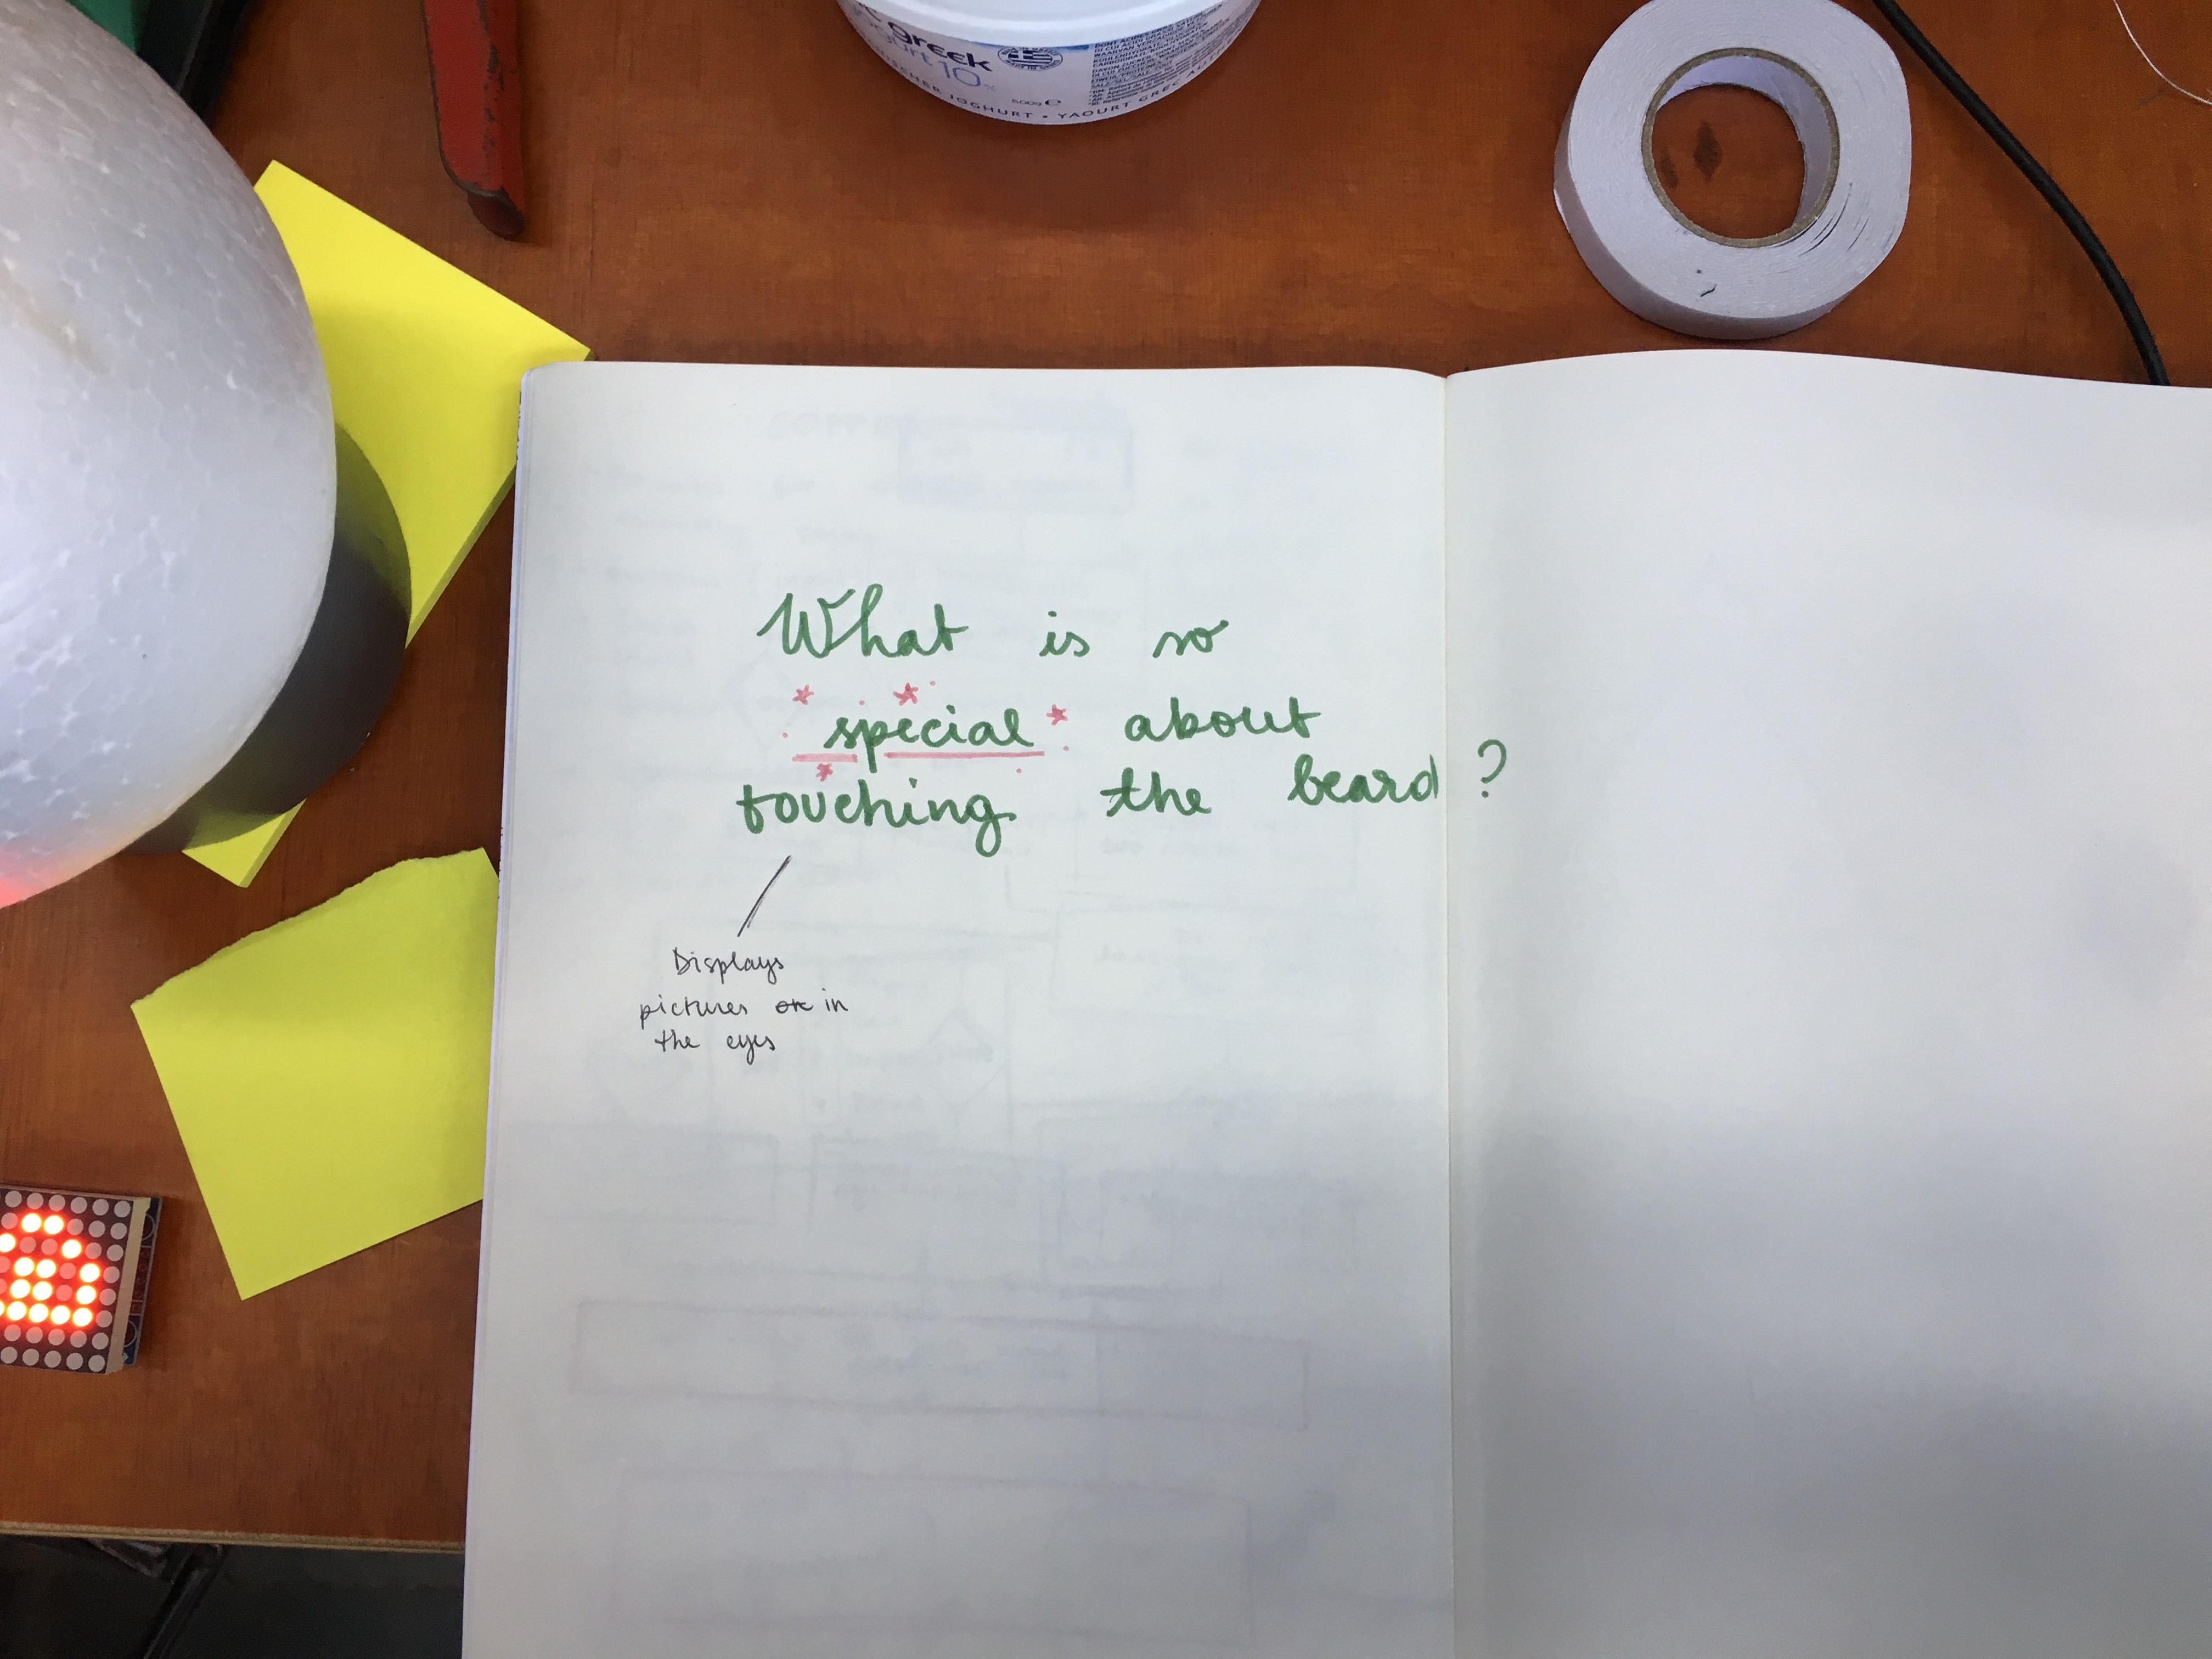 Greek
10%
500g e
JOGHURT • YAOURT
What is so
special about
touching the beard?
Displays
pictures on in
the eyes